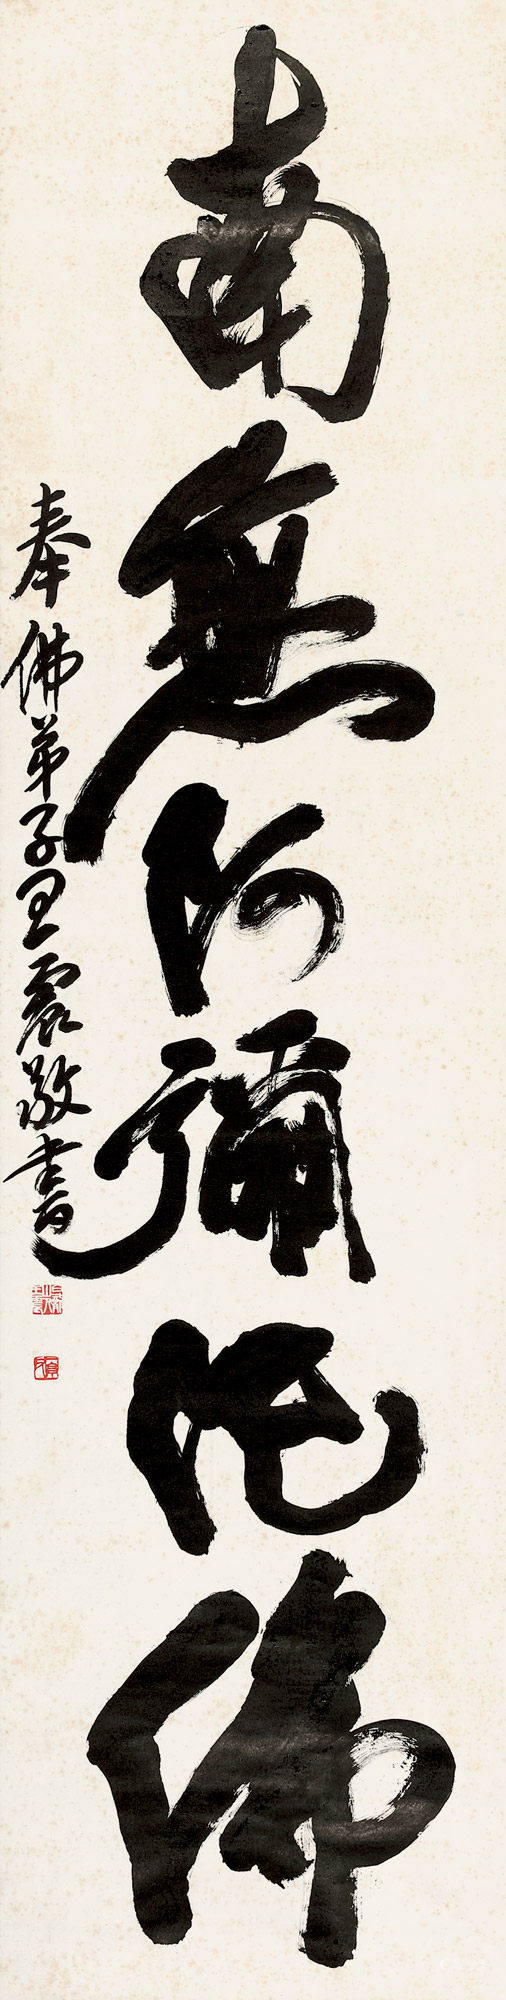 南無阿彌陀佛
奉佛弟子王震敬書